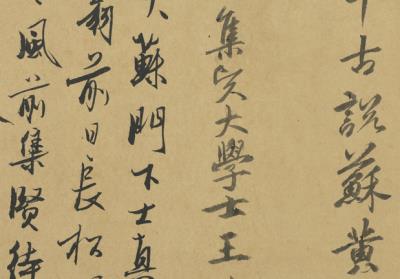 古說蘇黃
集賢大學士王
蘇門下士真
前日長松
風前集賢待